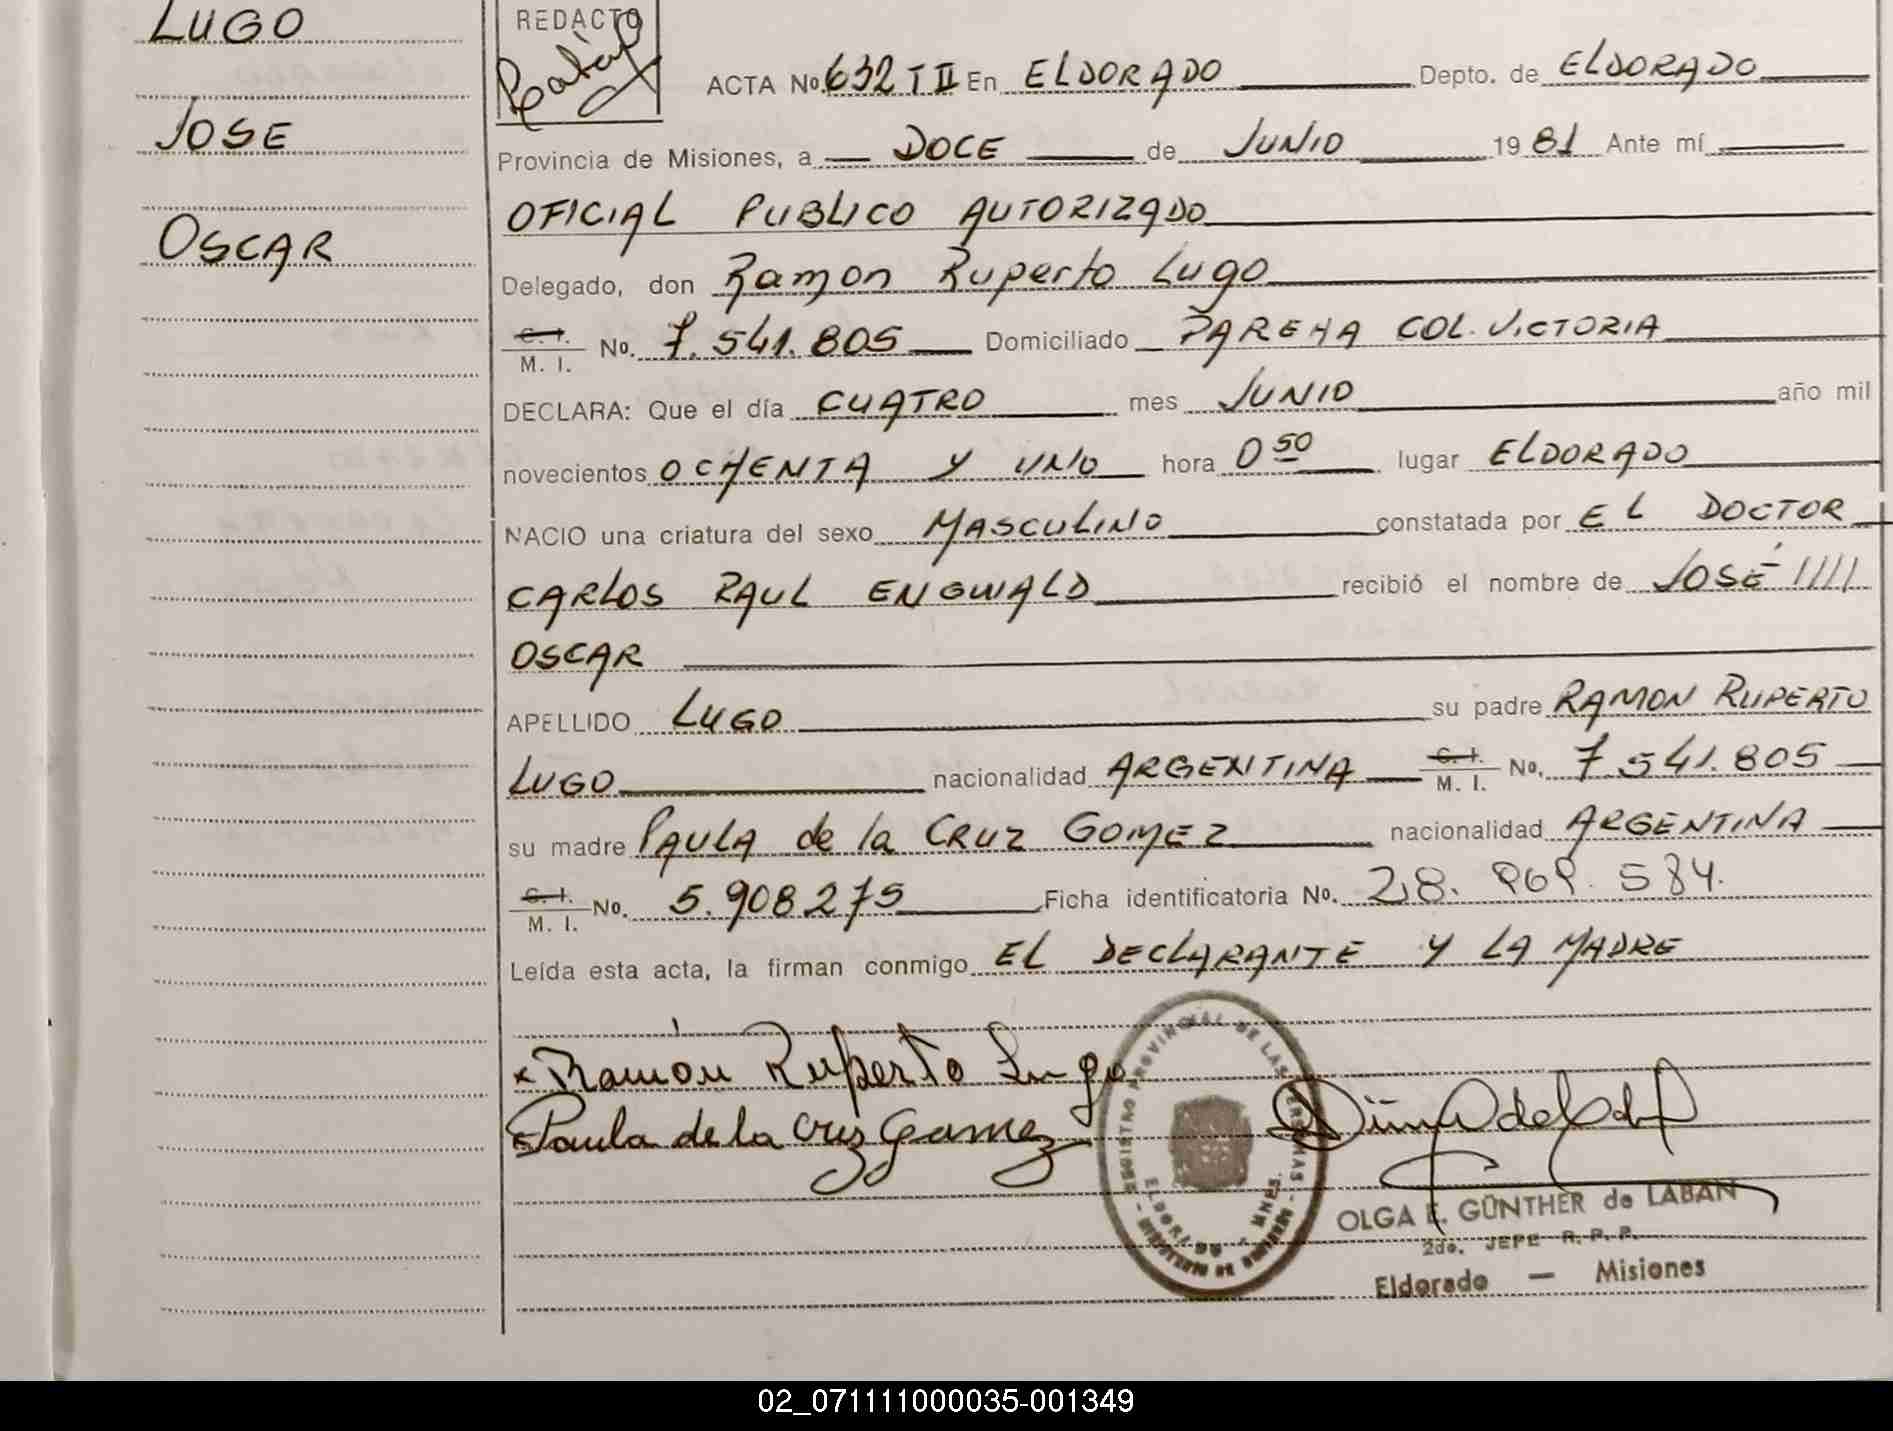 LUGO
JOSE
OSCAR
REDACTO
ACTA No. 632 T II En ELDORADO Depto. de ELDORADO
Provincia de Misiones, a DOCE de JUNIO 1981 Ante mí
OFICIAL PUBLICO AUTORIZADO
Delegado, don Ramon Ruperto Lugo
C. I. M. I. No. 7.541.805 Domiciliado PAREHA COL. VICTORIA
DECLARA: Que el día CUATRO mes JUNIO año mil
novecientos OCHENTA Y UNO hora 0 50 lugar ELDORADO
NACIO una criatura del sexo MASCULINO constatada por EL DOCTOR
CARLOS RAUL ENGWALD recibió el nombre de JOSÉ
OSCAR
APELLIDO LUGO su padre RAMON RUPERTO
LUGO nacionalidad ARGENTINA C. I. M. I. No. 7.541.805
su madre PAULA de la CRUZ GOMEZ nacionalidad ARGENTINA
C. I. M. I. No. 5.908.275 Ficha identificatoria No. 28. 969. 584.
Leída esta acta, la firman conmigo EL DECLARANTE Y LA MADRE
x Ramón Ruperto Lugo
Paula de la Cruz Gomez
REGISTRO PROVINCIAL DE LAS PERSONAS
ELDORADO - MNES.
OLGA E. GÜNTHER de LABAN
2do. JEFE R. P. P.
Eldorado — Misiones
02_071111000035-001349